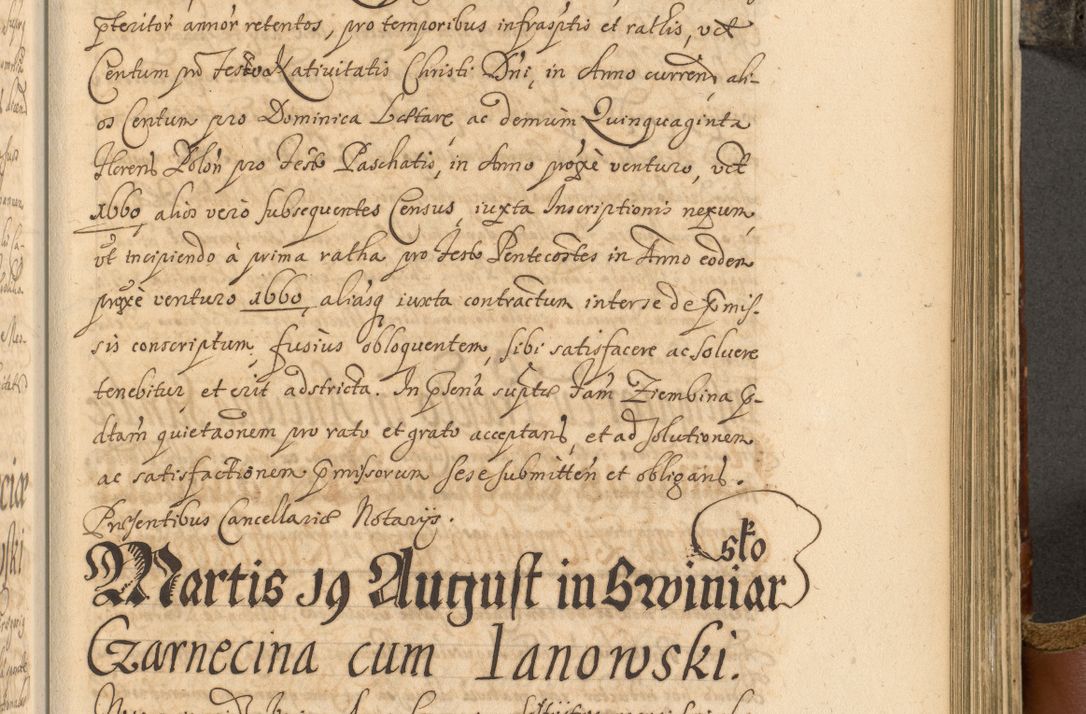 pteritor annor retentos, pro temporibus infrasptis et rattis, vet
Centum pro Festo Nativitatis Christi Dni, in Anno curren, ali-
os Centum pro Dominica Lættare ac demum Quinquaginta
Floren Polon pro Festo Paschatis, in Anno proxe venturo, vet
1660, alios vero subsequentes Census, iuxta Inscriptionis nexum,
vt incipiendo à prima ratha pro Festo Pentecostes in Anno eodem
proxe venturo 1660, aliasq iuxta contractum inter se de pmis-
sis conscriptum, fusius obloquentem, sibi satisfacere ac solvere
tenebitur, et erit adstricta. In psena supta Fam Ziembina p-
dtam quietaonem pro rato et grato acceptans, et ad solutionem
ac satisfactionem pmissorum sese submitten et obligans.
Præsentibus Cancellariæ Notarijs.
Martis 19 August in Swiniar
sko
Czarnecina cum Ianowski.